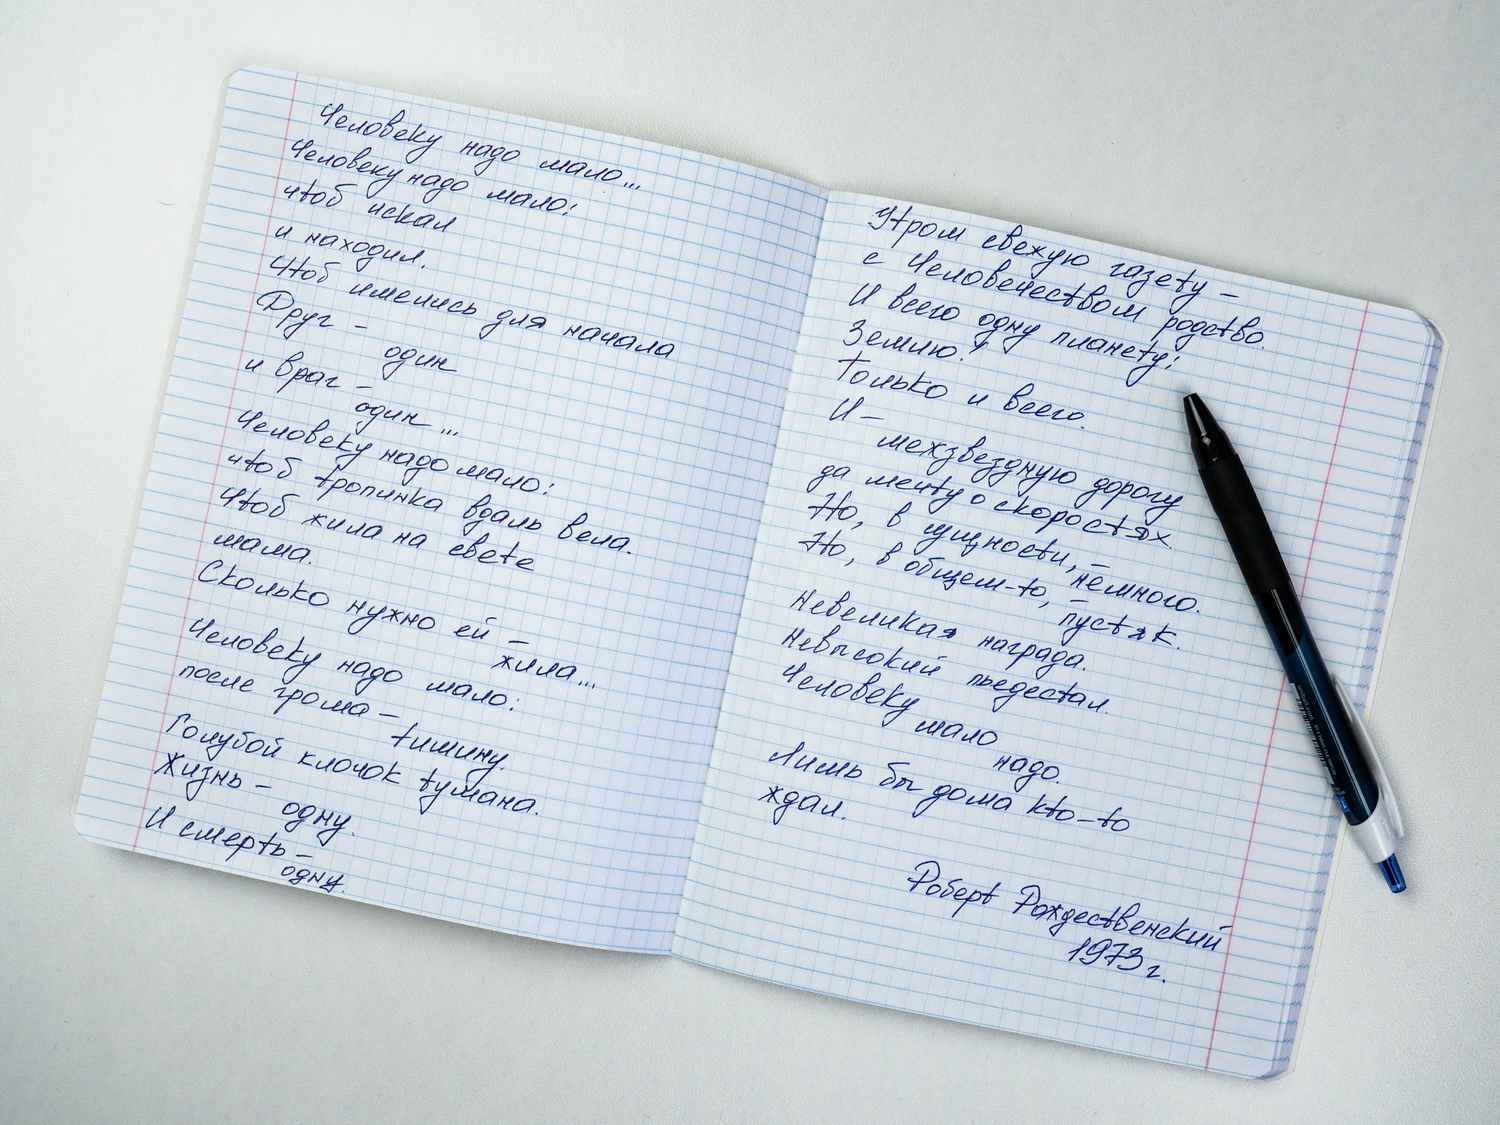 Человеку надо мало...
Человеку надо мало:
чтоб искал
и находил.
Чтоб имелись для начала
Друг –
один
и враг –
один...
Человеку надо мало:
чтоб тропинка вдаль вела.
Чтоб жила на свете
мама.
Сколько нужно ей –
жила...
Человеку надо мало:
после грома –
тишину.
Голубой клочок тумана.
Жизнь –
одну.
И смерть –
одну.
Утром свежую газету –
с Человечеством родство.
И всего одну планету:
Землю!
Только и всего.
И –
межзвездную дорогу
да мечту о скоростях
Но, в сущности, –
немного.
Но, в общем-то, –
пустяк.
Невеликая награда.
Невысокий пьедестал.
Человеку
мало
надо.
Лишь бы дома кто-то
ждал.
Роберт Рождественский
1973 г.